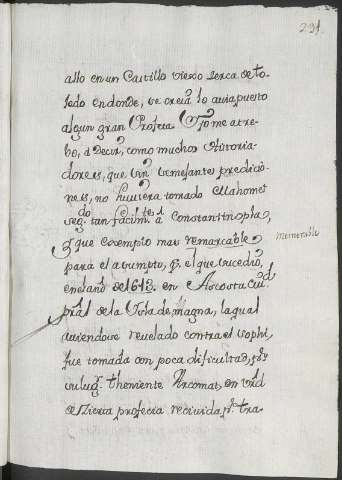 291.
allo en un Castillo viejo serca de to-
ledo en donde, se creia lo avia puesto
algun gran Profeta. Yo me atre-
bo, a Decir, como muchos Historia-
dores, que sin semejantes predicio-
nes, no huviera tomado Mahomet
seg.do tan facilm.te a Constantinopla,
y que exemplo mas remarcable
memorable
para el asumpto, q. el que sucedio,
en el año de 1613. en Ciu.d
pral de la Isla de magna, la qual
aviendose revelado contra el sophi,
fue tomada con poca dificultad, por
su lug. theniente Arcomat, en vir.d
de Zierta profecia recivida, p.r tra-